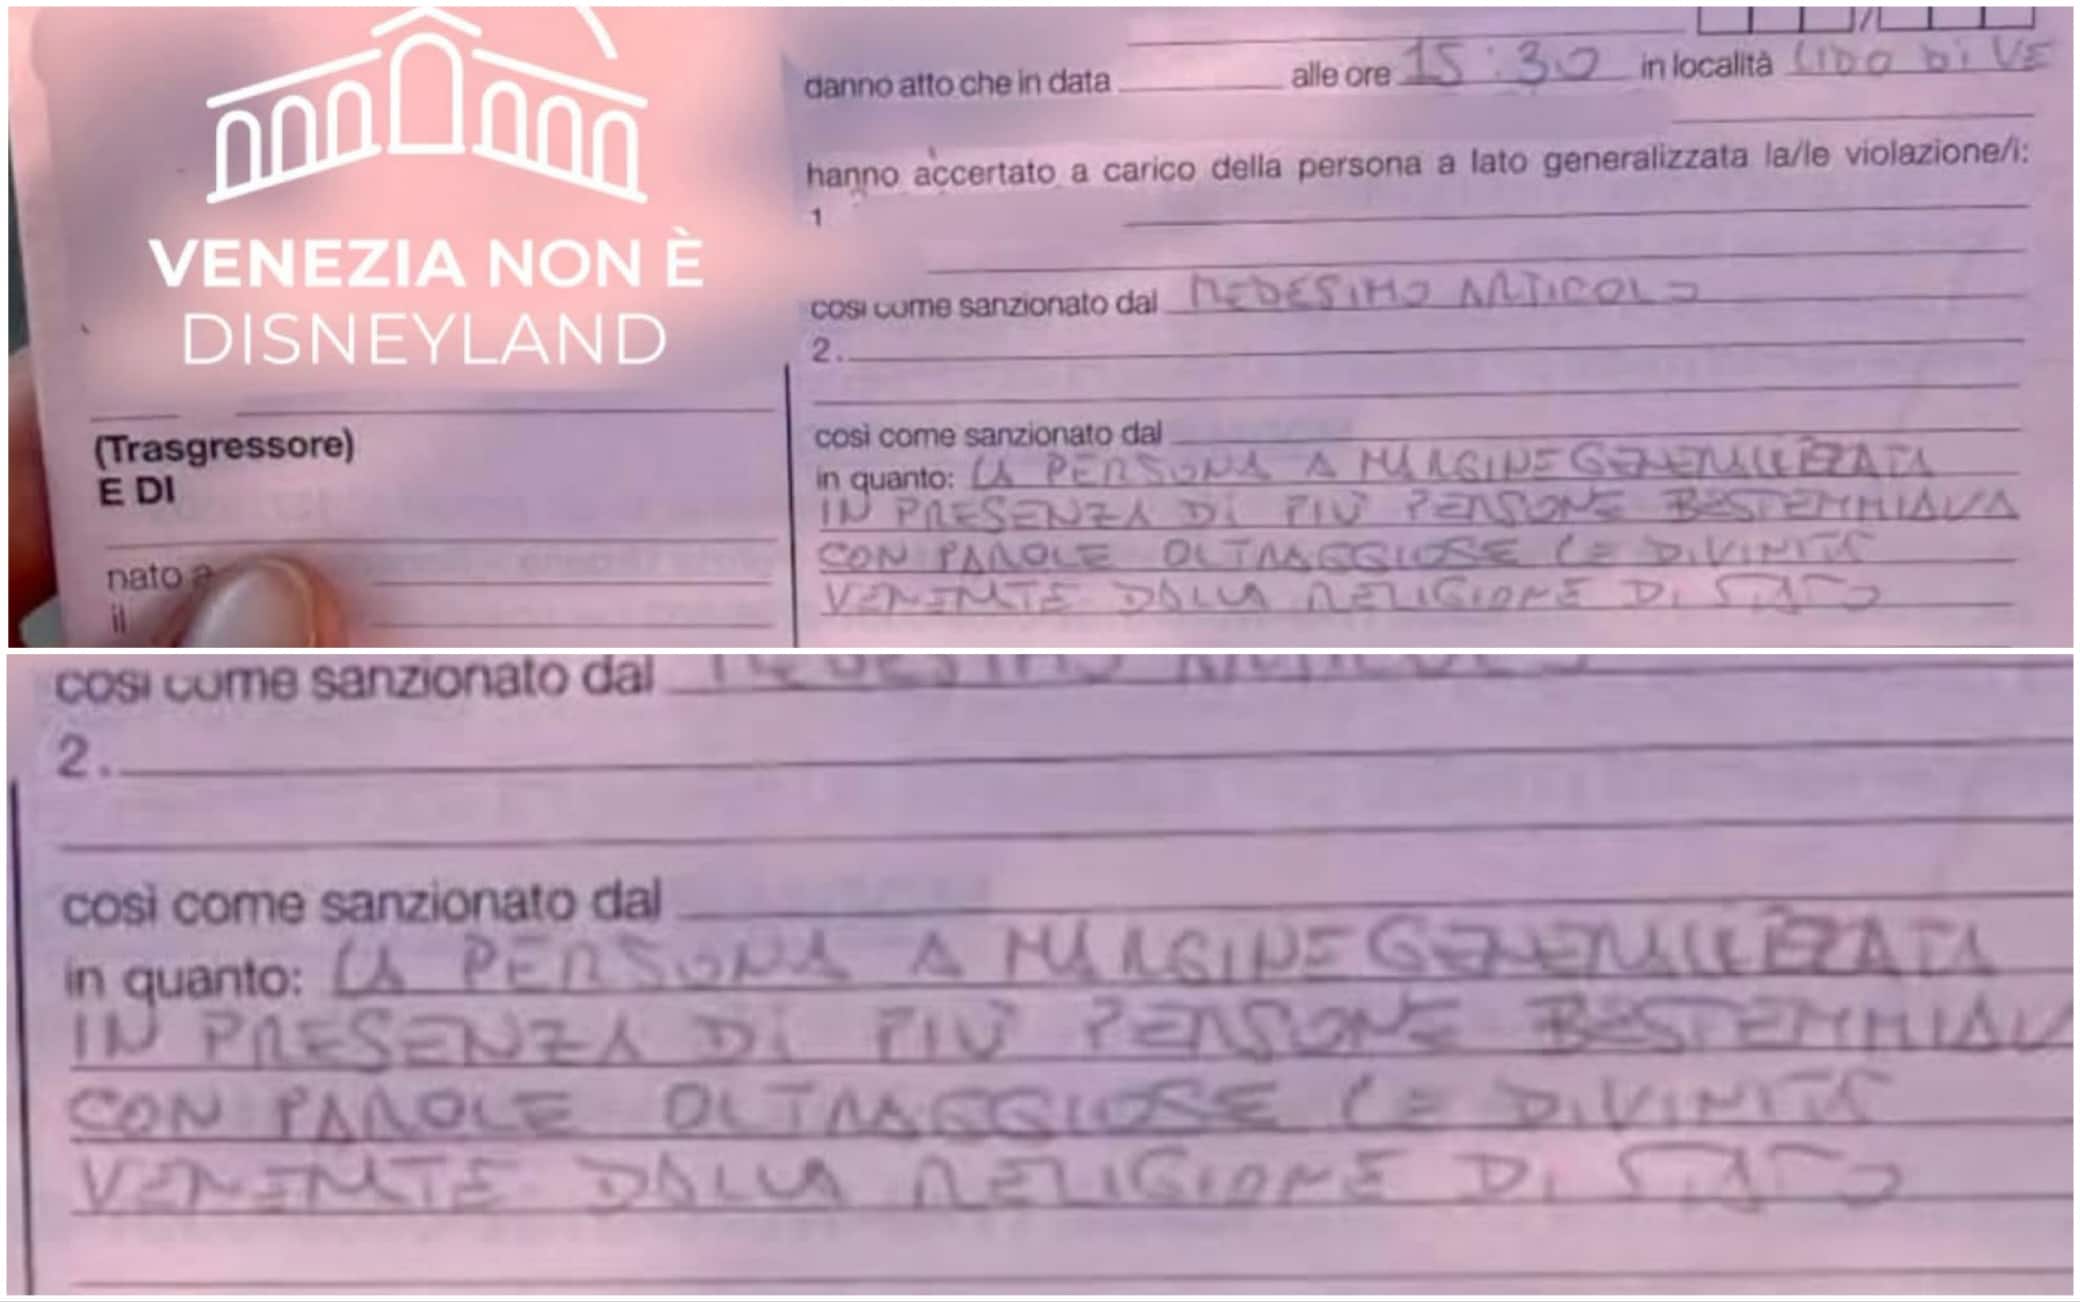 VENEZIA NON È
DISNEYLAND
(Trasgressore)
E DI
nato a
il
danno atto che in data alle ore 15:30 in località LIDO DI VE
hanno accertato a carico della persona a lato generalizzata la/le violazione/i:
1
così come sanzionato dal MEDESIMO ARTICOLO
2.
così come sanzionato dal
in quanto: LA PERSONA A MARGINE GENERALIZZATA
IN PRESENZA DI PIÙ PERSONE BESTEMMIAVA
CON PAROLE OLTRAGGIOSE LE DIVINITÀ
VENERATE DALLA RELIGIONE DI STATO
così come sanzionato dal MEDESIMO ARTICOLO
2.
così come sanzionato dal
in quanto: LA PERSONA A MARGINE GENERALIZZATA
IN PRESENZA DI PIÙ PERSONE BESTEMMIAV
CON PAROLE OLTRAGGIOSE LE DIVINITÀ
VENERATE DALLA RELIGIONE DI STATO